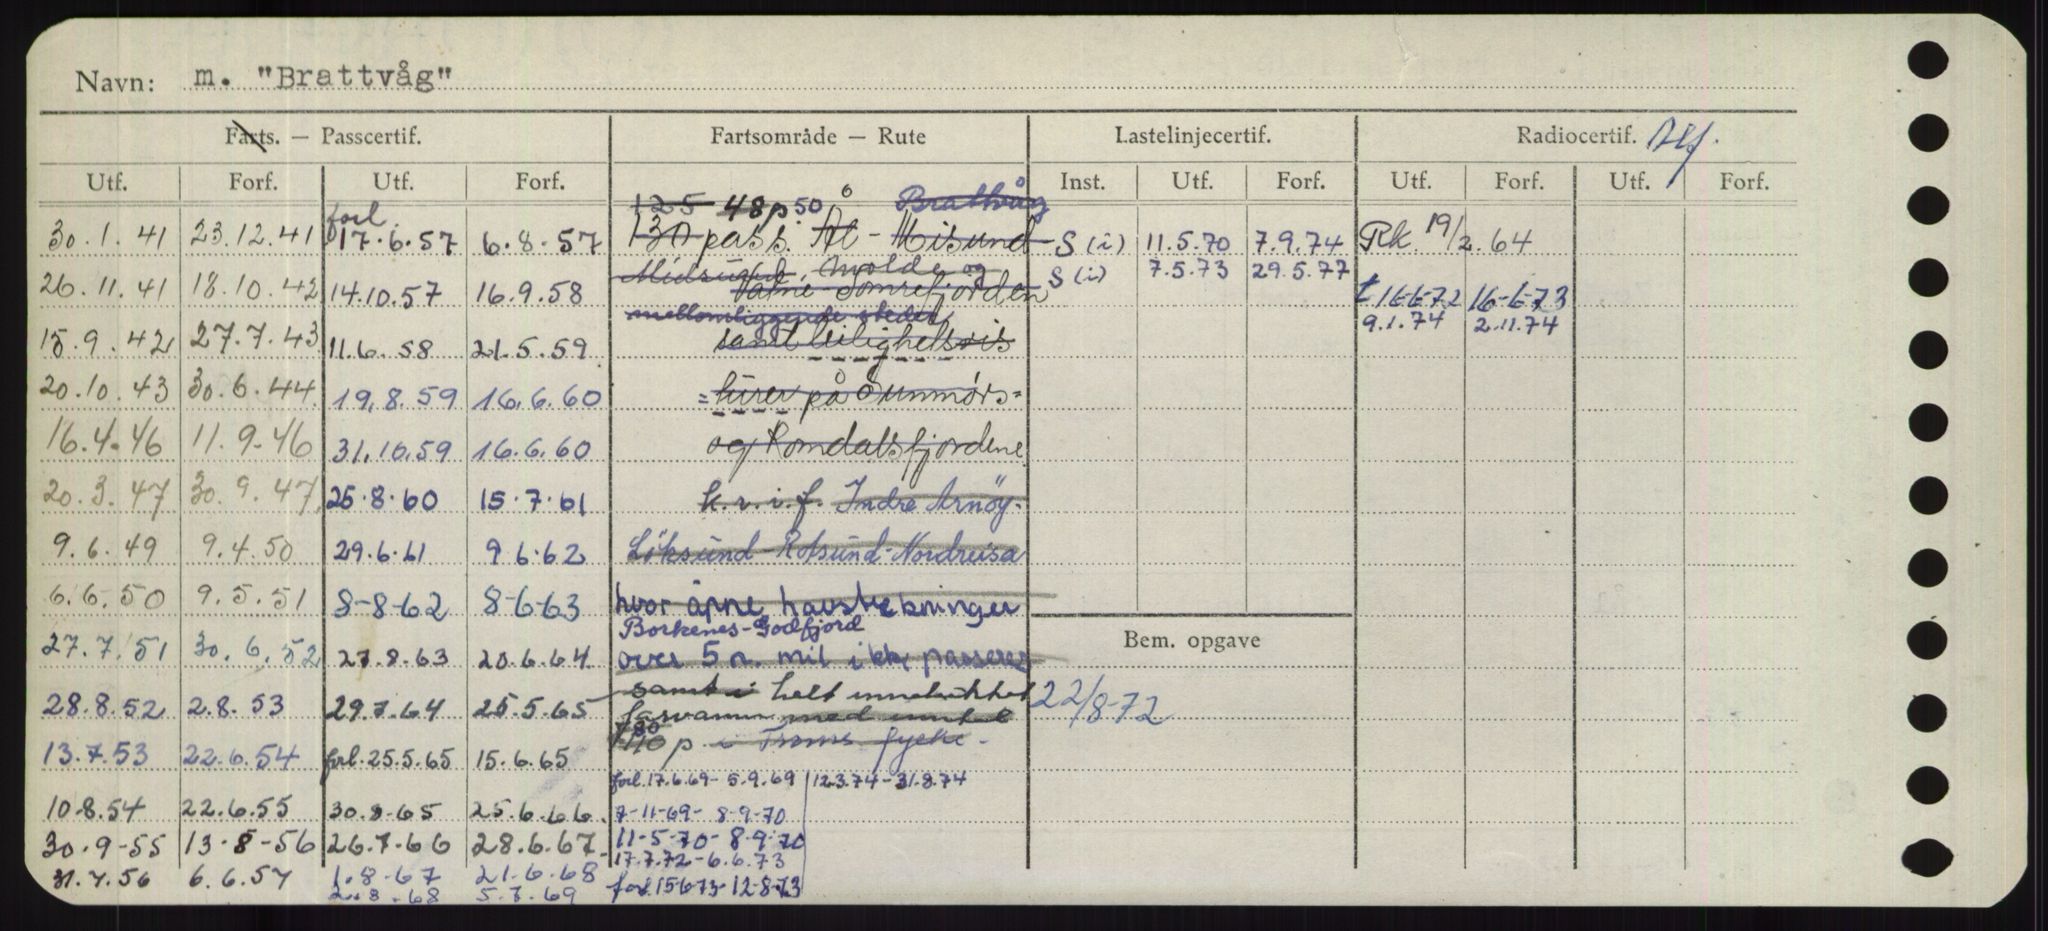 Navn: m. "Brattvåg"
Farts. — Passcertif. Fartsområde — Rute Lastelinjecertif. Radiocertif.
Utf. Forf. Utf. Forf. Inst. Utf. Forf. Utf. Forf. Utf. Forf.
125 48 p 50 Brattvåg
30.1.41 23.12.41 forl. 17.6.57 6.8.57 130 pass. Ål - Misund S (i) 11.5.70 7.9.74 Rk. 19/2.64
Midsund, Molde og S (i) 7.5.73 29.5.77
26.11.41 18.10.42 14.10.57 16.9.58 Vatne Tomrefjorden t 16-6-72 16-6-73
mellomliggende steder 9.1.74 2.11.74
15.9.42 27.7.43 11.6.58 21.5.59 samt leilighetsvis
20.10.43 30.6.44 19.8.59 16.6.60 = turer på Sunnmørs=
16.4.46 11.9.46 31.10.59 16.6.60 og Romdalsfjordene
20.3.47 30.9.47 25.8.60 15.7.61 k.v.i.f. Indre Arnöy-
9.6.49 9.4.50 29.6.61 9.6.62 Löksund-Rotsund-Nordreisa
6.6.50 9.5.51 8-8-62 8-6-63 hvor åpne havstrekninger
Borkenes-Godfjord
27.7.51 30.6.52 27.8.63 20.6.64 over 5 n. mil ikke passeres
Bem. opgave
28.8.52 2.8.53 29.7.64 25.5.65 samt i helt innelukket
farvann med inntil 22/8-72
13.7.53 22.6.54 forl. 25.5.65 15.6.65 p. i Troms fylke.
forl. 17.6.69 - 5.9.69 12.3.74 - 31.8.74
10.8.54 22.6.55 30.8.65 25.6.66. 7-11-69 - 8-9-70
30.9-55 13.8-56 26.7.66 28.6.67. 11-5-70 - 8.9.70
17.7.72 - 6.6.73
31.7.56 6.6.57 1.8-67 21.6.68 forl. 15673 - 12-8-73
2.8.68 5.7.69